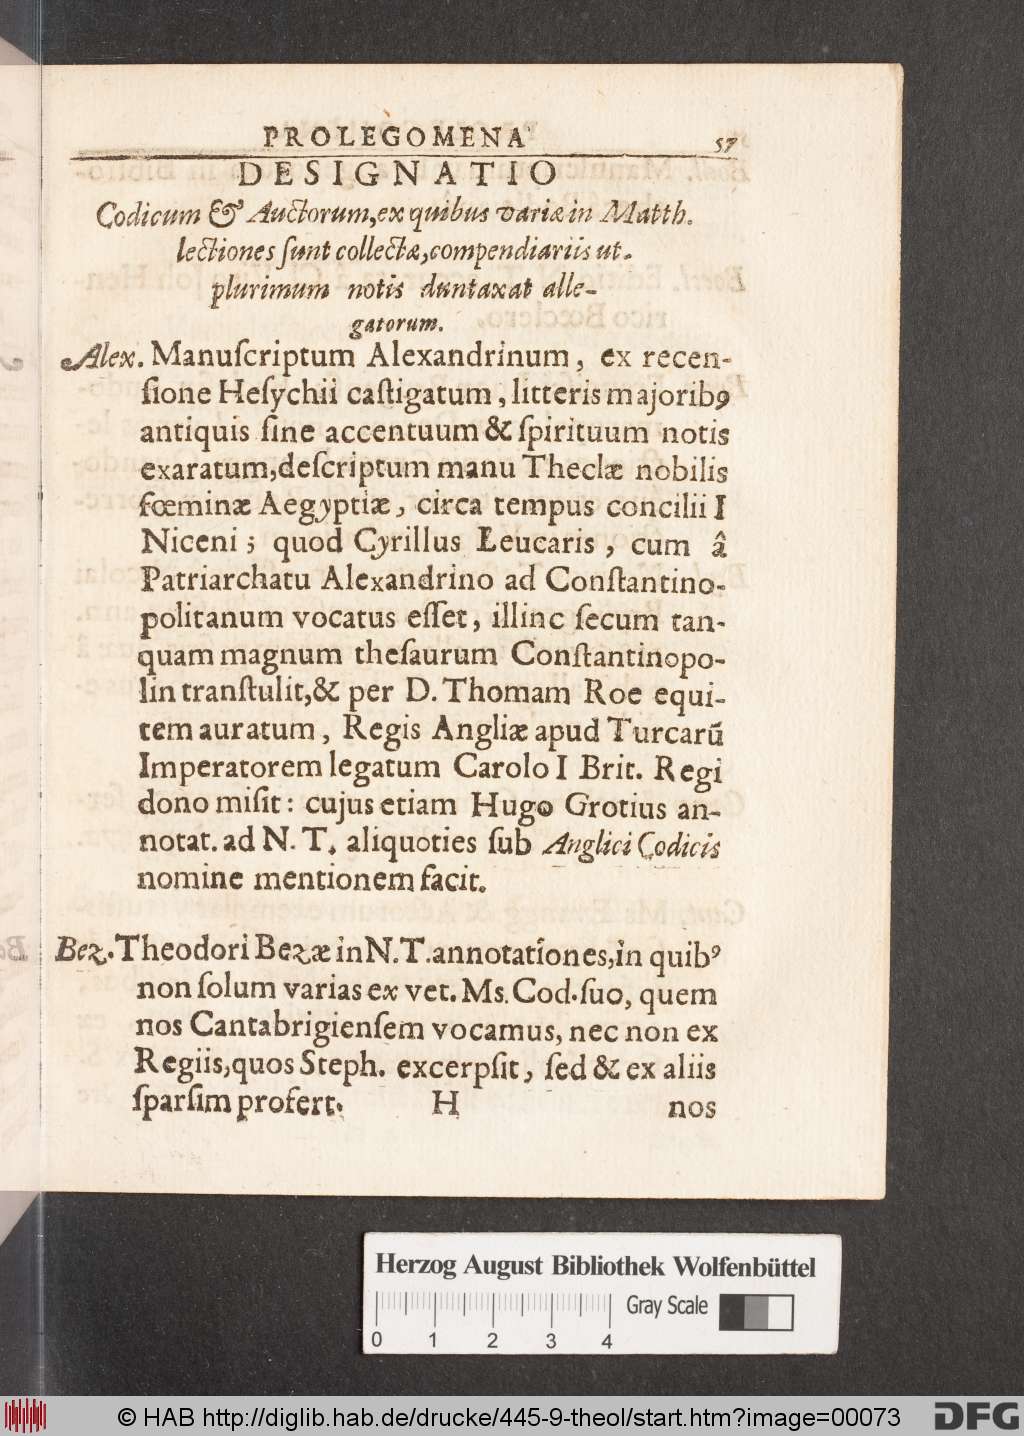 PROLEGOMENA 57
DESIGNATIO
Codicum & Auctorum, ex quibus variæ in Matth.
lectiones ſunt collectæ, compendiariis ut-
plurimum notis duntaxat alle-
gatorum.
Alex. Manuſcriptum Alexandrinum, ex recen-
ſione Heſychii caſtigatum, litteris majoribꝰ
antiquis ſine accentuum & ſpirituum notis
exaratum, deſcriptum manu Theclæ nobilis
fœminæ Aegyptiæ, circa tempus concilii I
Niceni; quod Cyrillus Leucaris, cum â
Patriarchatu Alexandrino ad Conſtantino-
politanum vocatus eſſet, illinc ſecum tan-
quam magnum theſaurum Conſtantinopo-
lin tranſtulit, & per D. Thomam Roe equi-
tem auratum, Regis Angliæ apud Turcarũ
Imperatorem legatum Carolo I Brit. Regi
dono miſit: cujus etiam Hugo Grotius an-
notat. ad N. T. aliquoties ſub Anglici Codicis
nomine mentionem facit.
Bez. Theodori Bezæ in N. T. annotationes, in quibꝰ
non ſolum varias ex vet. Ms. Cod. ſuo, quem
nos Cantabrigienſem vocamus, nec non ex
Regiis, quos Steph. excerpſit, ſed & ex aliis
ſparſim profert. H nos
Herzog August Bibliothek Wolfenbüttel
Gray Scale
0 1 2 3 4
© HAB http://diglib.hab.de/drucke/445-9-theol/start.htm?image=00073
DFG